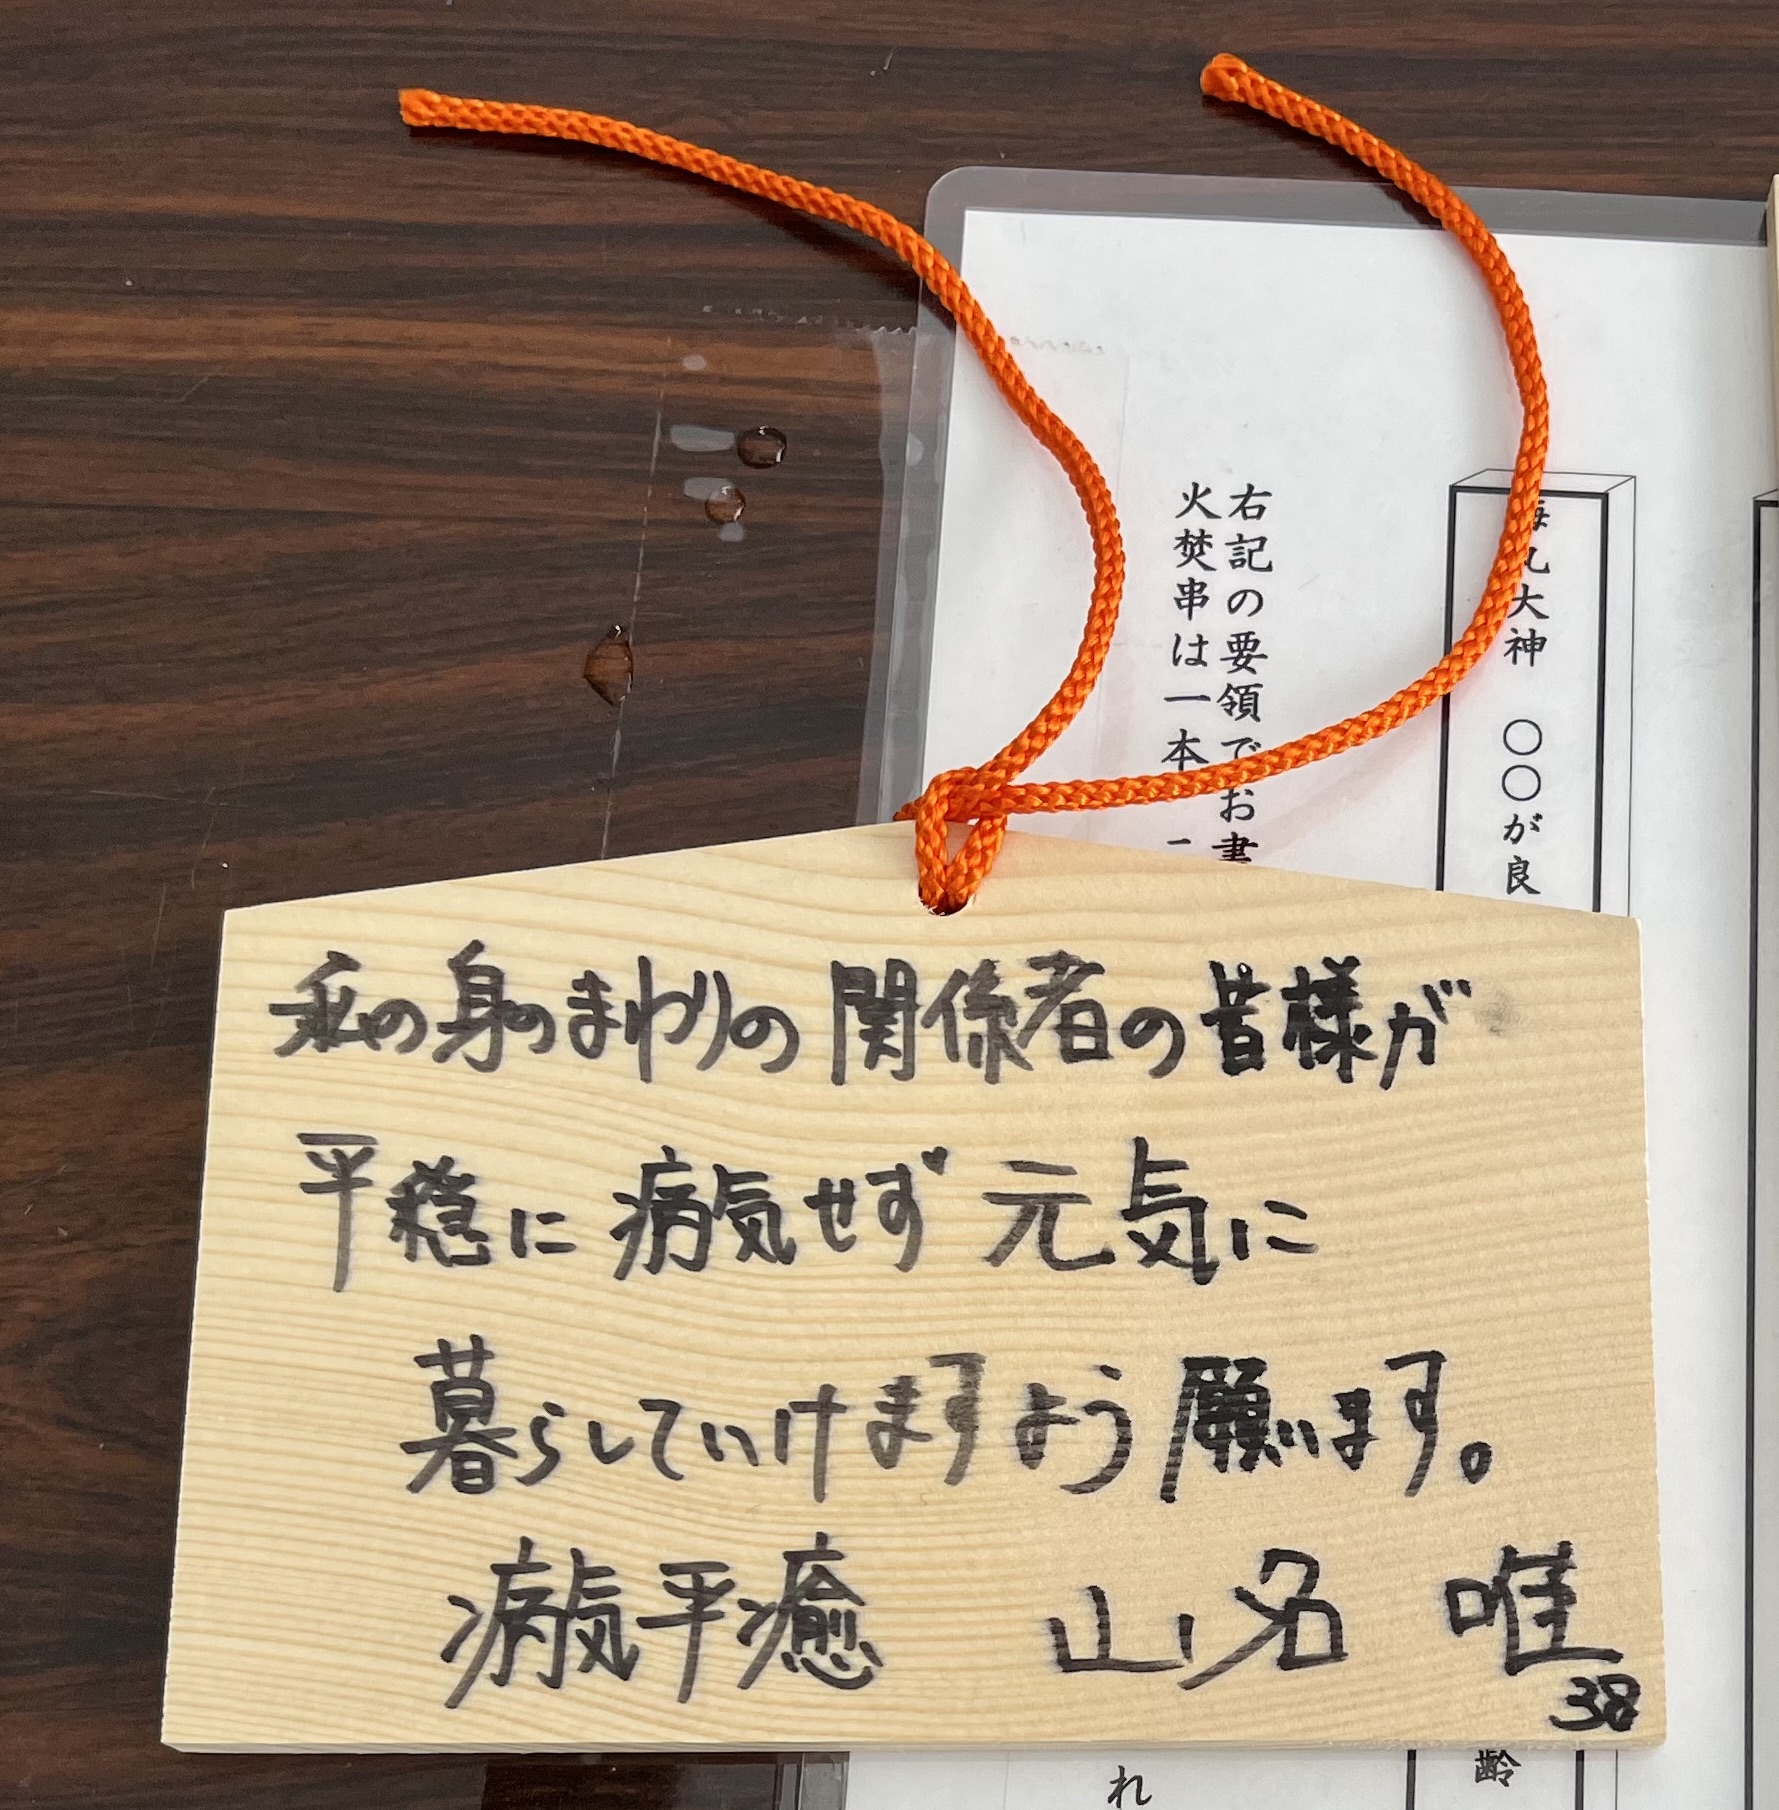 私の身のまわりの関係者の皆様が
平穏に病気せず元気に
暮らしていけますよう願います。
病気平癒 山名 唯
38
大神 〇〇が良
齢
右記の要領でお書
火焚串は一本
れ